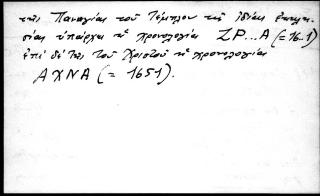 τῆς Παναγίας τοῦ Τέμπλου τῆς ἰδίας ἐκκλη-
σίας ὑπάρχει ἡ χρονολογία ΖΡ...Α (=16.1)
ἐπὶ δὲ τῆς τοῦ Χριστοῦ ἡ χρονολογία
ΑΧΝΑ (= 1651).